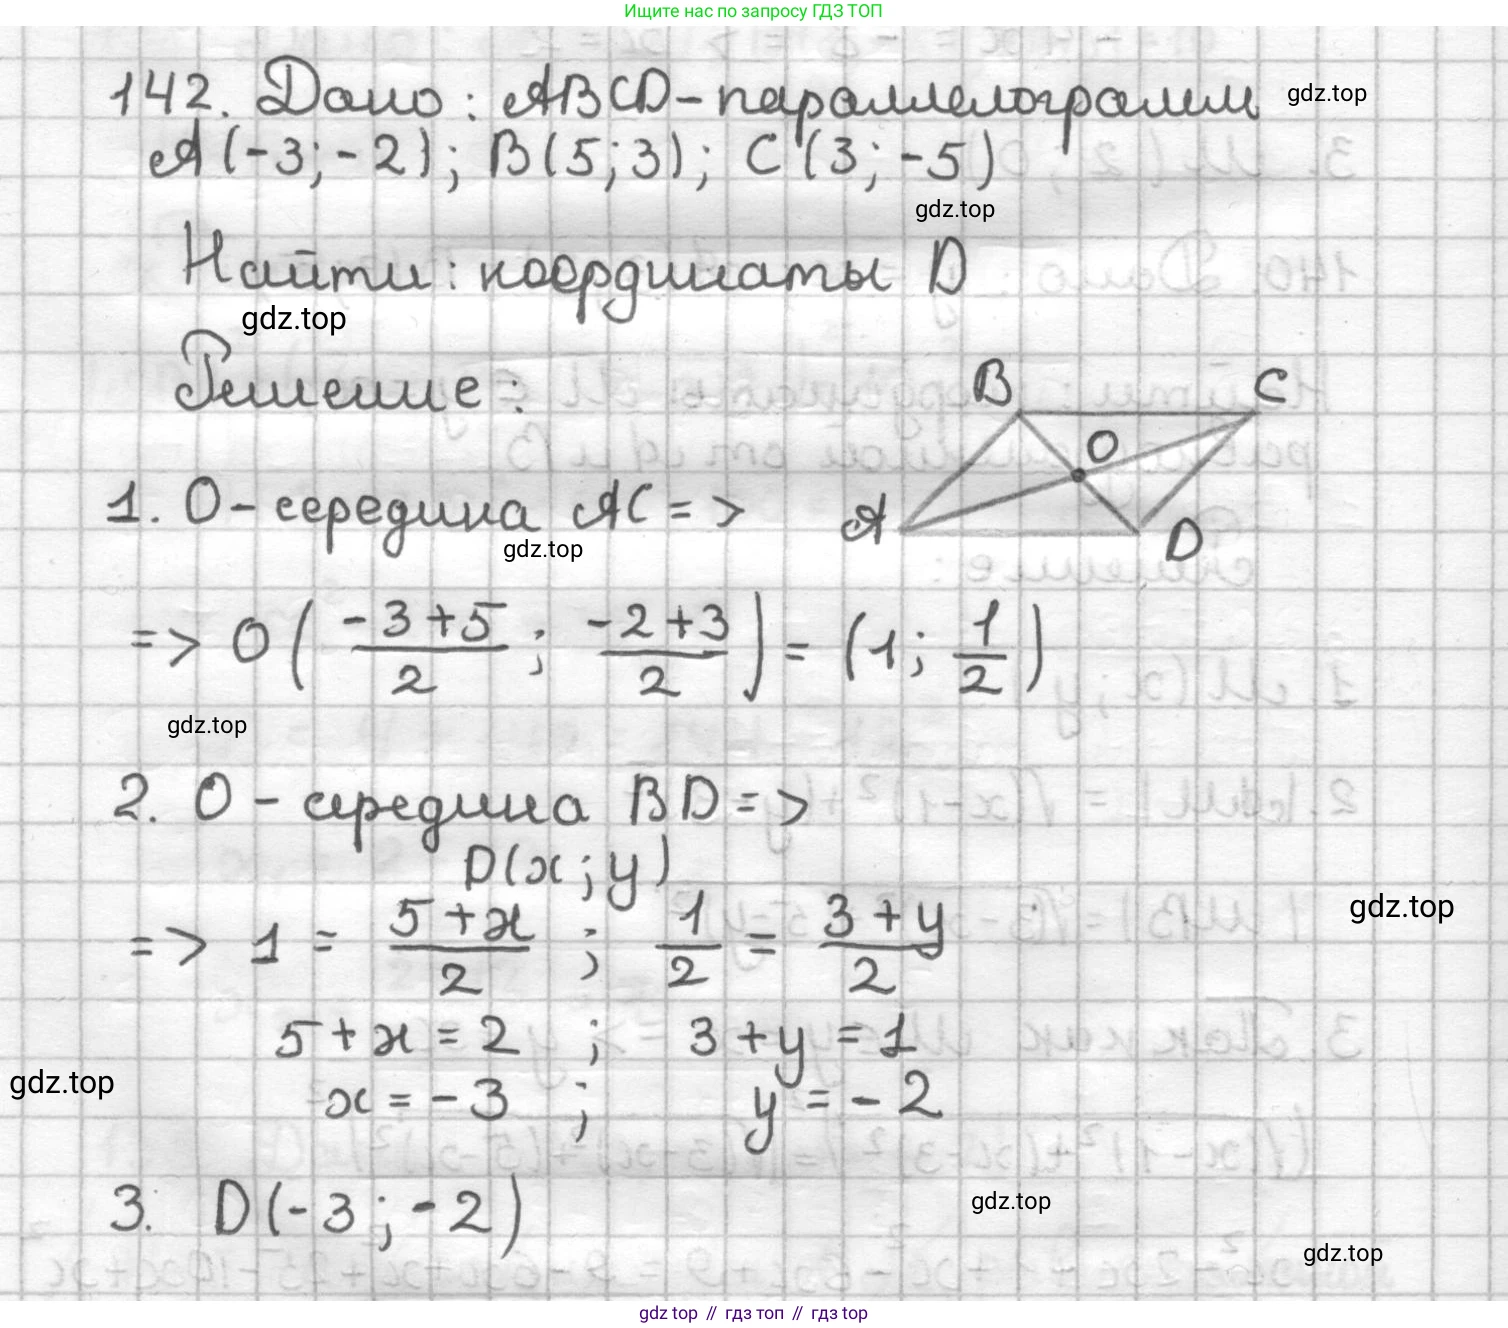 Ищите нас по запросу ГДЗ ТОП
142. Дано: ABCD - параллелограмм
gdz.top
A(-3; -2); B(5; 3); C(3; -5)
gdz.top
Найти: координаты D
gdz.top
Решение:
B C
O
A D
1. O - середина AC =>
gdz.top
=> O((-3+5)/2; (-2+3)/2) = (1; 1/2)
gdz.top
2. O - середина BD =>
D(x; y)
=> 1 = (5+x)/2 ; 1/2 = (3+y)/2
gdz.top
5+x = 2 ; 3+y = 1
gdz.top
x = -3 ; y = -2
3. D(-3; -2)
gdz.top
gdz.top
gdz top // гдз топ // гдз top